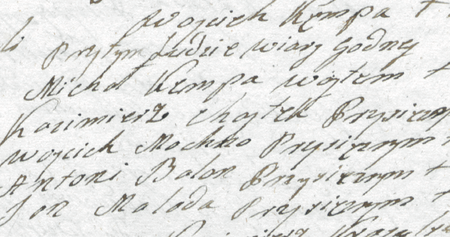 Woyciek Kempa +
li Prytym ludzie wiary godney
Michał Kempa woytem +
Kazimierz Chaytek Prysiezny
Woyciek Mochno Prysieznym
Antoni Balon Prysieznym +
Jon Maloda Prysieznym +